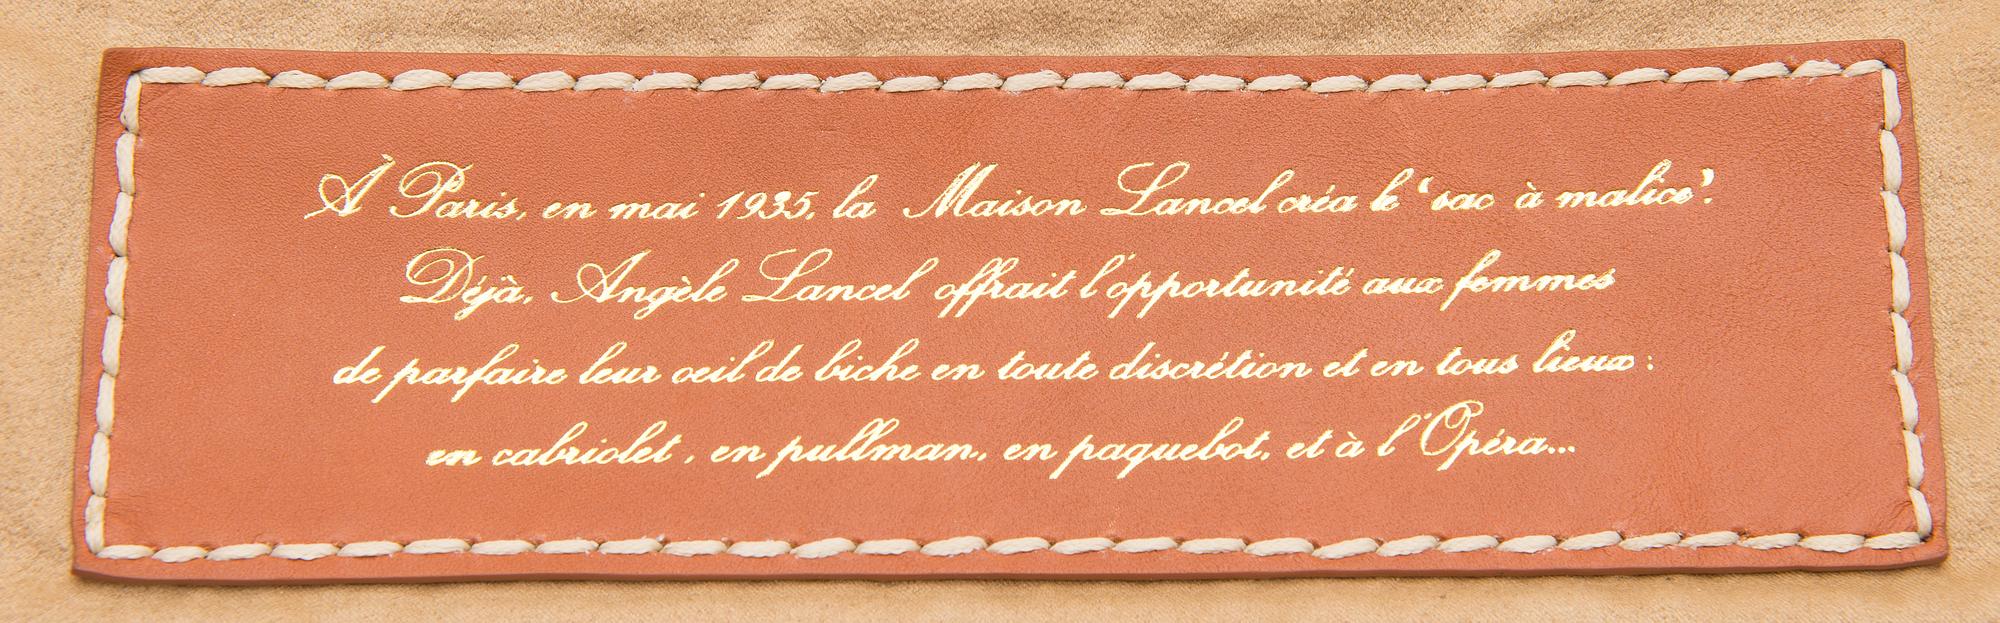 À Paris, en mai 1935, la Maison Lancel créa le ‘sac à malice’.
Déjà, Angèle Lancel offrait l'opportunité aux femmes
de parfaire leur œil de biche en toute discrétion et en tous lieux :
en cabriolet , en pullman, en paquebot, et à l'Opéra...